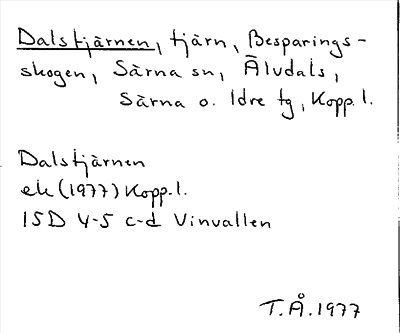 Dalstjärnen, tjärn, Besparings-
skogen, Särna sn, Älvdals,
Särna o. Idre tg, Kopp. l.
Dalstjärnen
ek (1977) Kopp. l.
15D 4-5 c-d Vinvallen
T.Å. 1977